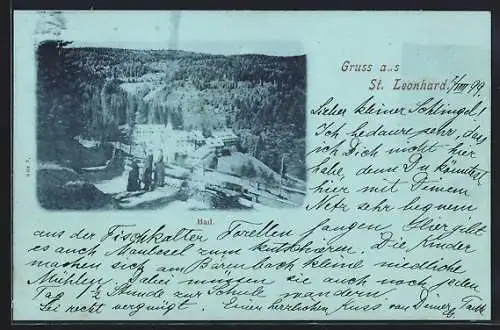 Gruss aus
St. Leonhard. 7/VIII 99
Lieber kleiner Schlingel!
Ich bedaure sehr, dass
ich Dich nicht hier
habe, denn Du könntest
hier mit Deinem
Netz sehr bequem
Bad.
aus der Fischkalter Forellen fangen. Hier gibt
es auch Maulesel zum kutschieren. Die Kinder
machen sich am Bärenbach kleine niedliche
Mühlen. Dabei müssen sie auch noch jeden
Tag 1/2 Stunde zur Schule wandern.
Sei recht vergnügt. Einen herzlichen Kuss von Deiner